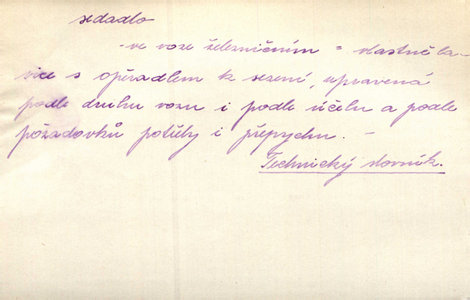 sedadlo
- ve voze železničním = vlastně la-
vice s opěradlem k sezení, upravená
podle druhu vozu i podle účelu a podle
požadovků potřeby i přepychu. -
Technický slovník.